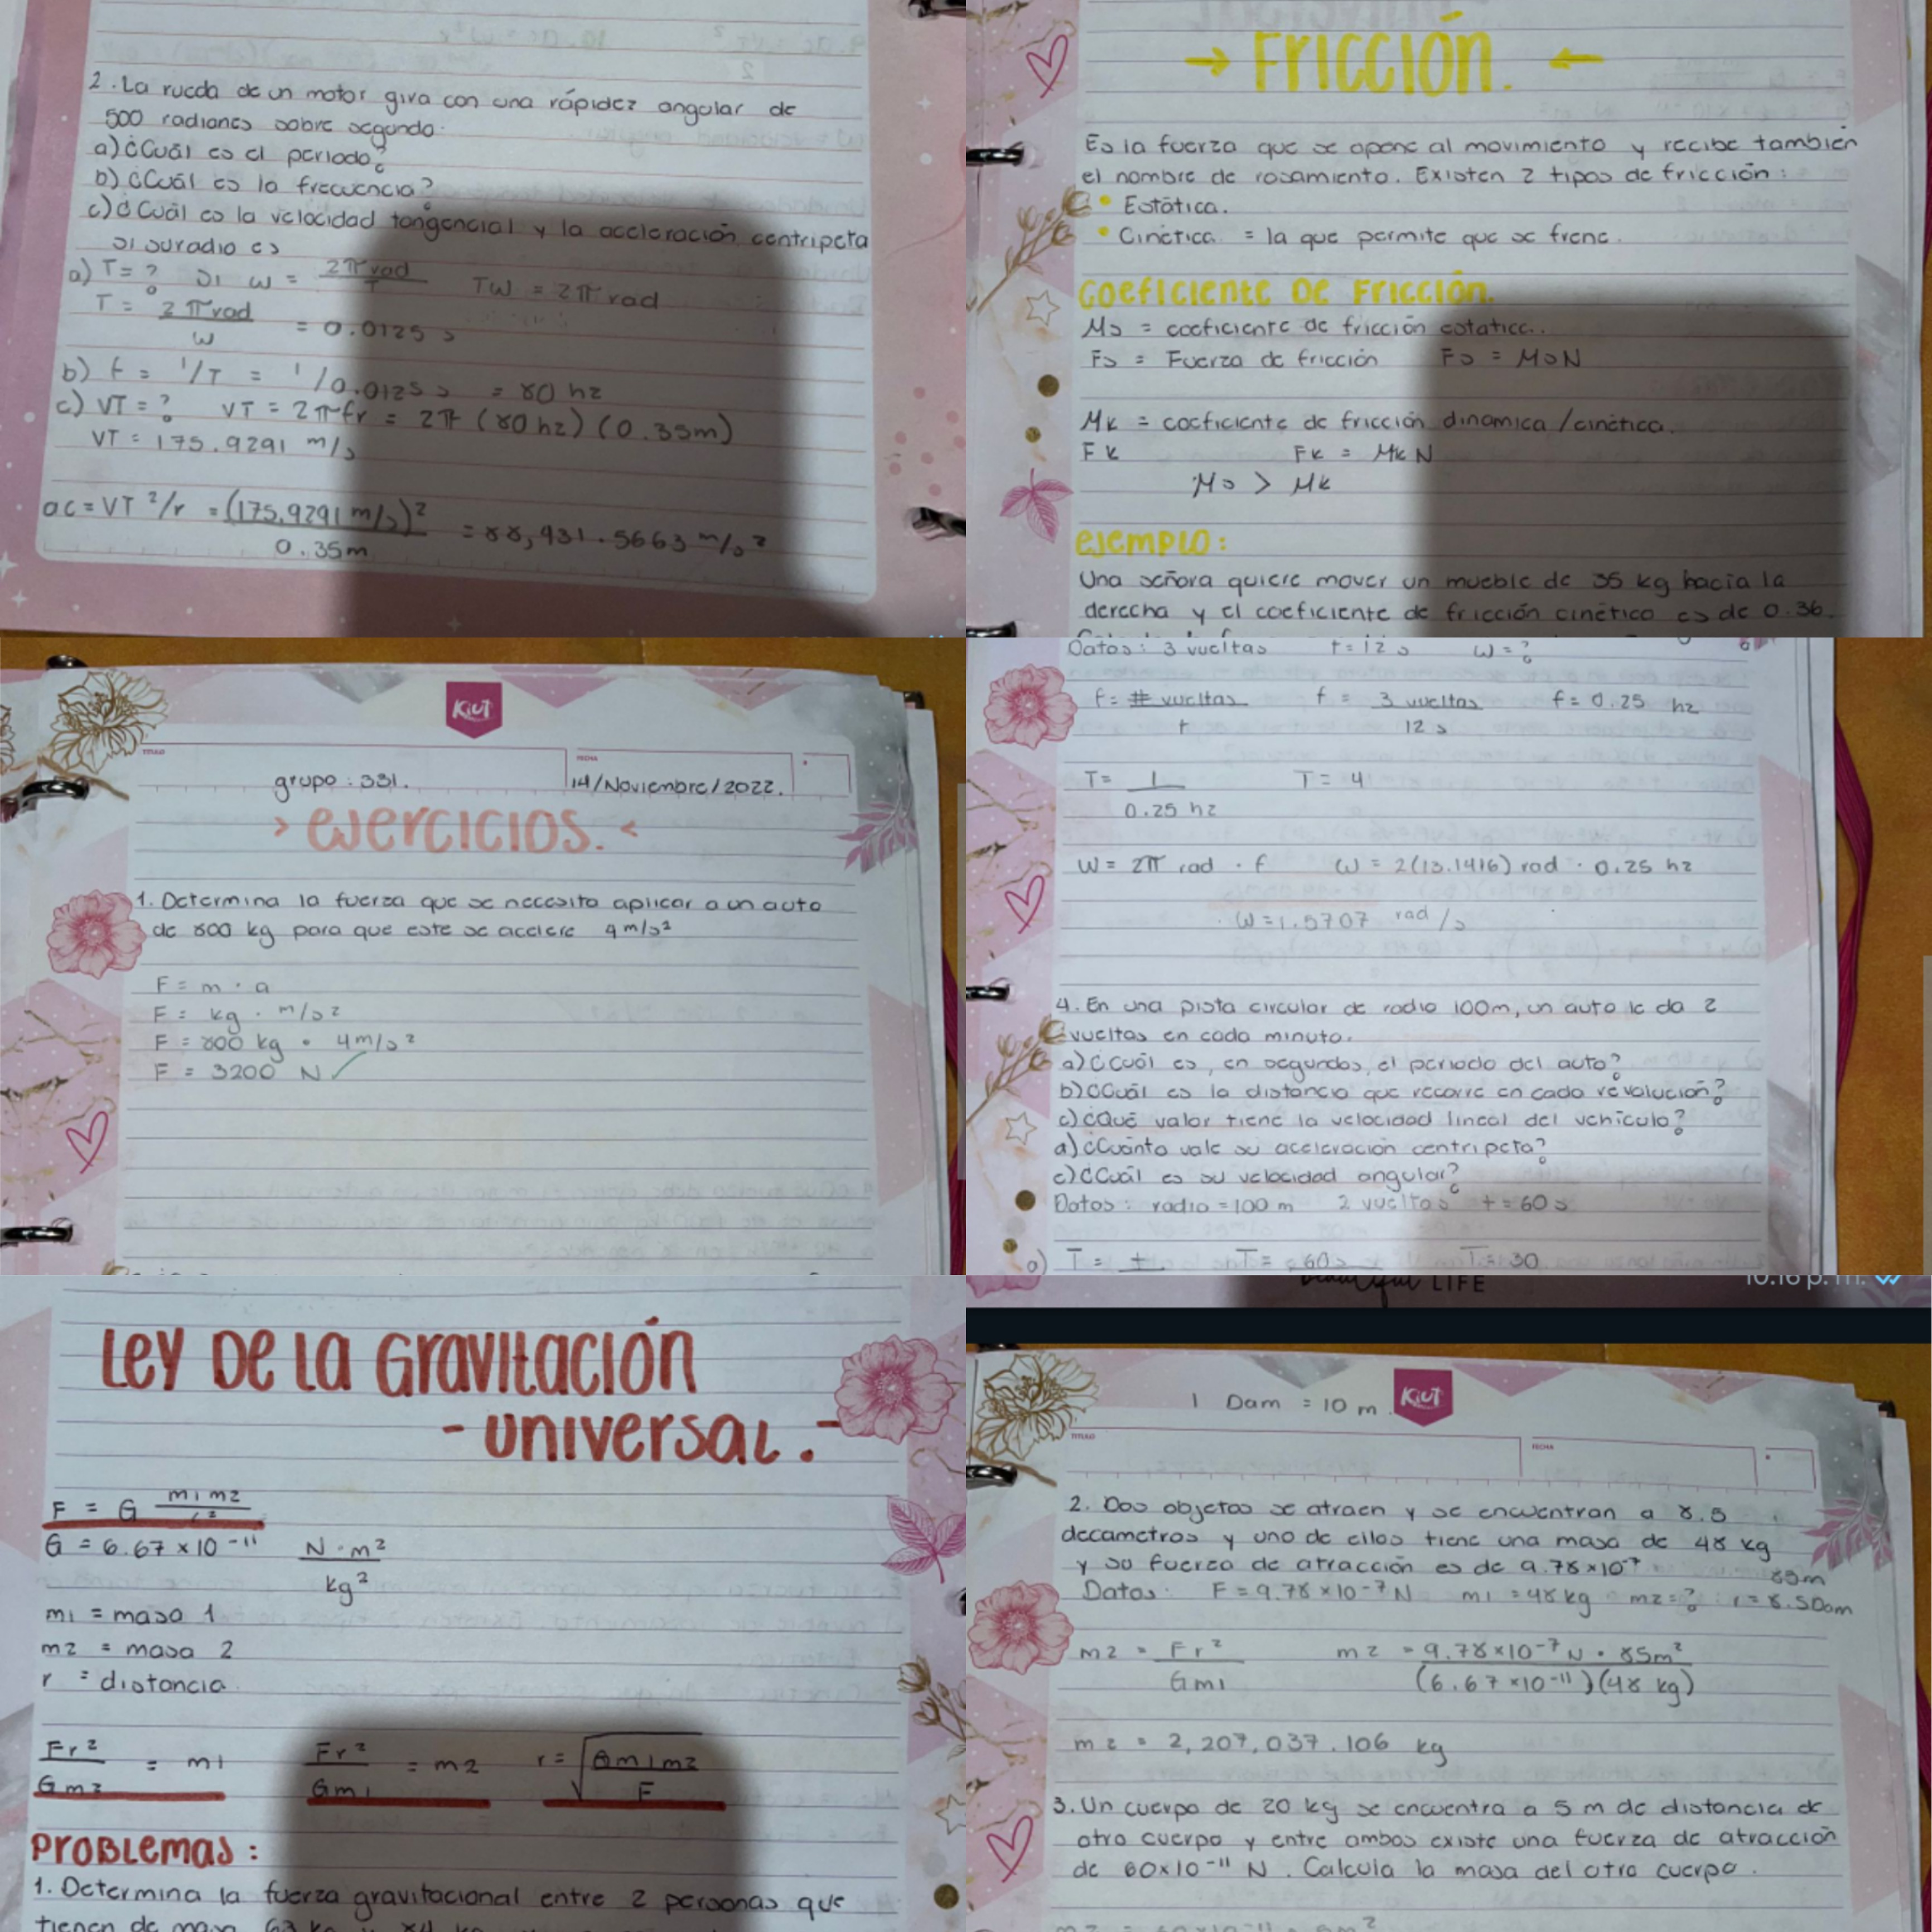 2. La rueda de un motor gira con una rápidez angular de
500 radianes sobre segundo.
a) ¿Cuál es el periodo?
b) ¿Cuál es la frecuencia?
c) ¿Cuál es la velocidad tangencial y la aceleración centripeta
si suradio es
a) T = ? si ω = 2π rad / T   Tω = 2π rad
T = 2π rad / ω = 0.0125 s
b) f = 1/T = 1/0.0125 s = 80 hz
c) VT = ? VT = 2πfr = 2π (80 hz) (0.35m)
VT = 175.9291 m/s
ac = VT²/r = (175.9291 m/s)² / 0.35m = 88,431.5663 m/s²
→ Fricción. ←
Es la fuerza que se opone al movimiento y recibe también
el nombre de rosamiento. Existen 2 tipos de fricción:
• Estática.
• Cinética. = la que permite que se frene.
Coeficiente de Fricción.
Ms = coeficiente de fricción estatica.
Fs = Fuerza de fricción Fs = MsN
Mk = coeficiente de fricción dinamica/cinética.
Fk Fk = MkN
Ms > Mk
ejemplo:
Una señora quiere mover un mueble de 35 kg hacia la
derecha y el coeficiente de fricción cinético es de 0.36.
Kiut
TITULO FECHA
grupo: 331. 14/Noviembre/2022.
> ejercicios. <
1. Determina la fuerza que se necesita aplicar a un auto
de 800 kg para que este se acelere 4 m/s²
F = m · a
F = kg · m/s²
F = 800 kg · 4 m/s²
F = 3200 N ✓
Datos: 3 vueltas t = 12 s ω = ?
f = # vueltas / t   f = 3 vueltas / 12 s   f = 0.25 hz
T = 1 / 0.25 hz   T = 4
W = 2π rad · f ω = 2(13.1416) rad · 0.25 hz
ω = 1.5707 rad/s
4. En una pista circular de radio 100m, un auto le da 2
vueltas en cada minuto.
a) ¿Cuál es, en segundos, el periodo del auto?
b) ¿Cuál es la distancia que recorre en cada revolución?
c) ¿Qué valor tiene la velocidad lineal del vehículo?
d) ¿Cuánto vale su aceleración centripeta?
e) ¿Cuál es su velocidad angular?
Datos: radio = 100 m 2 vueltas t = 60 s
a) T = t   T = 60s   T = 30
Ley de la Gravitación
- universal. -
F = G m1 m2 / r²
G = 6.67 x 10⁻¹¹ N·m² / kg²
m1 = masa 1
m2 = masa 2
r = distancia
Fr² / Gm2 = m1   Fr² / Gm1 = m2   r = √(Gm1m2 / F)
Problemas:
1. Determina la fuerza gravitacional entre 2 personas que
tienen de masa
beautiful LIFE
10:16 p. m.
1 Dam = 10 m
Kiut
TITULO FECHA
2. Dos objetos se atraen y se encuentran a 8.5
decametros y uno de ellos tiene una masa de 48 kg
y su fuerza de atracción es de 9.78x10⁻⁷
85m
Datos: F = 9.78 x 10⁻⁷ N m1 = 48 kg m2 = ? r = 8.5Dam
m2 = Fr² / Gm1   m2 = 9.78x10⁻⁷ N · 85m² / (6.67x10⁻¹¹)(48 kg)
m2 = 2,207,037.106 kg
3. Un cuerpo de 20 kg se encuentra a 5 m de distancia de
otro cuerpo y entre ambos existe una fuerza de atracción
de 60x10⁻¹¹ N. Calcula la masa del otro cuerpo.